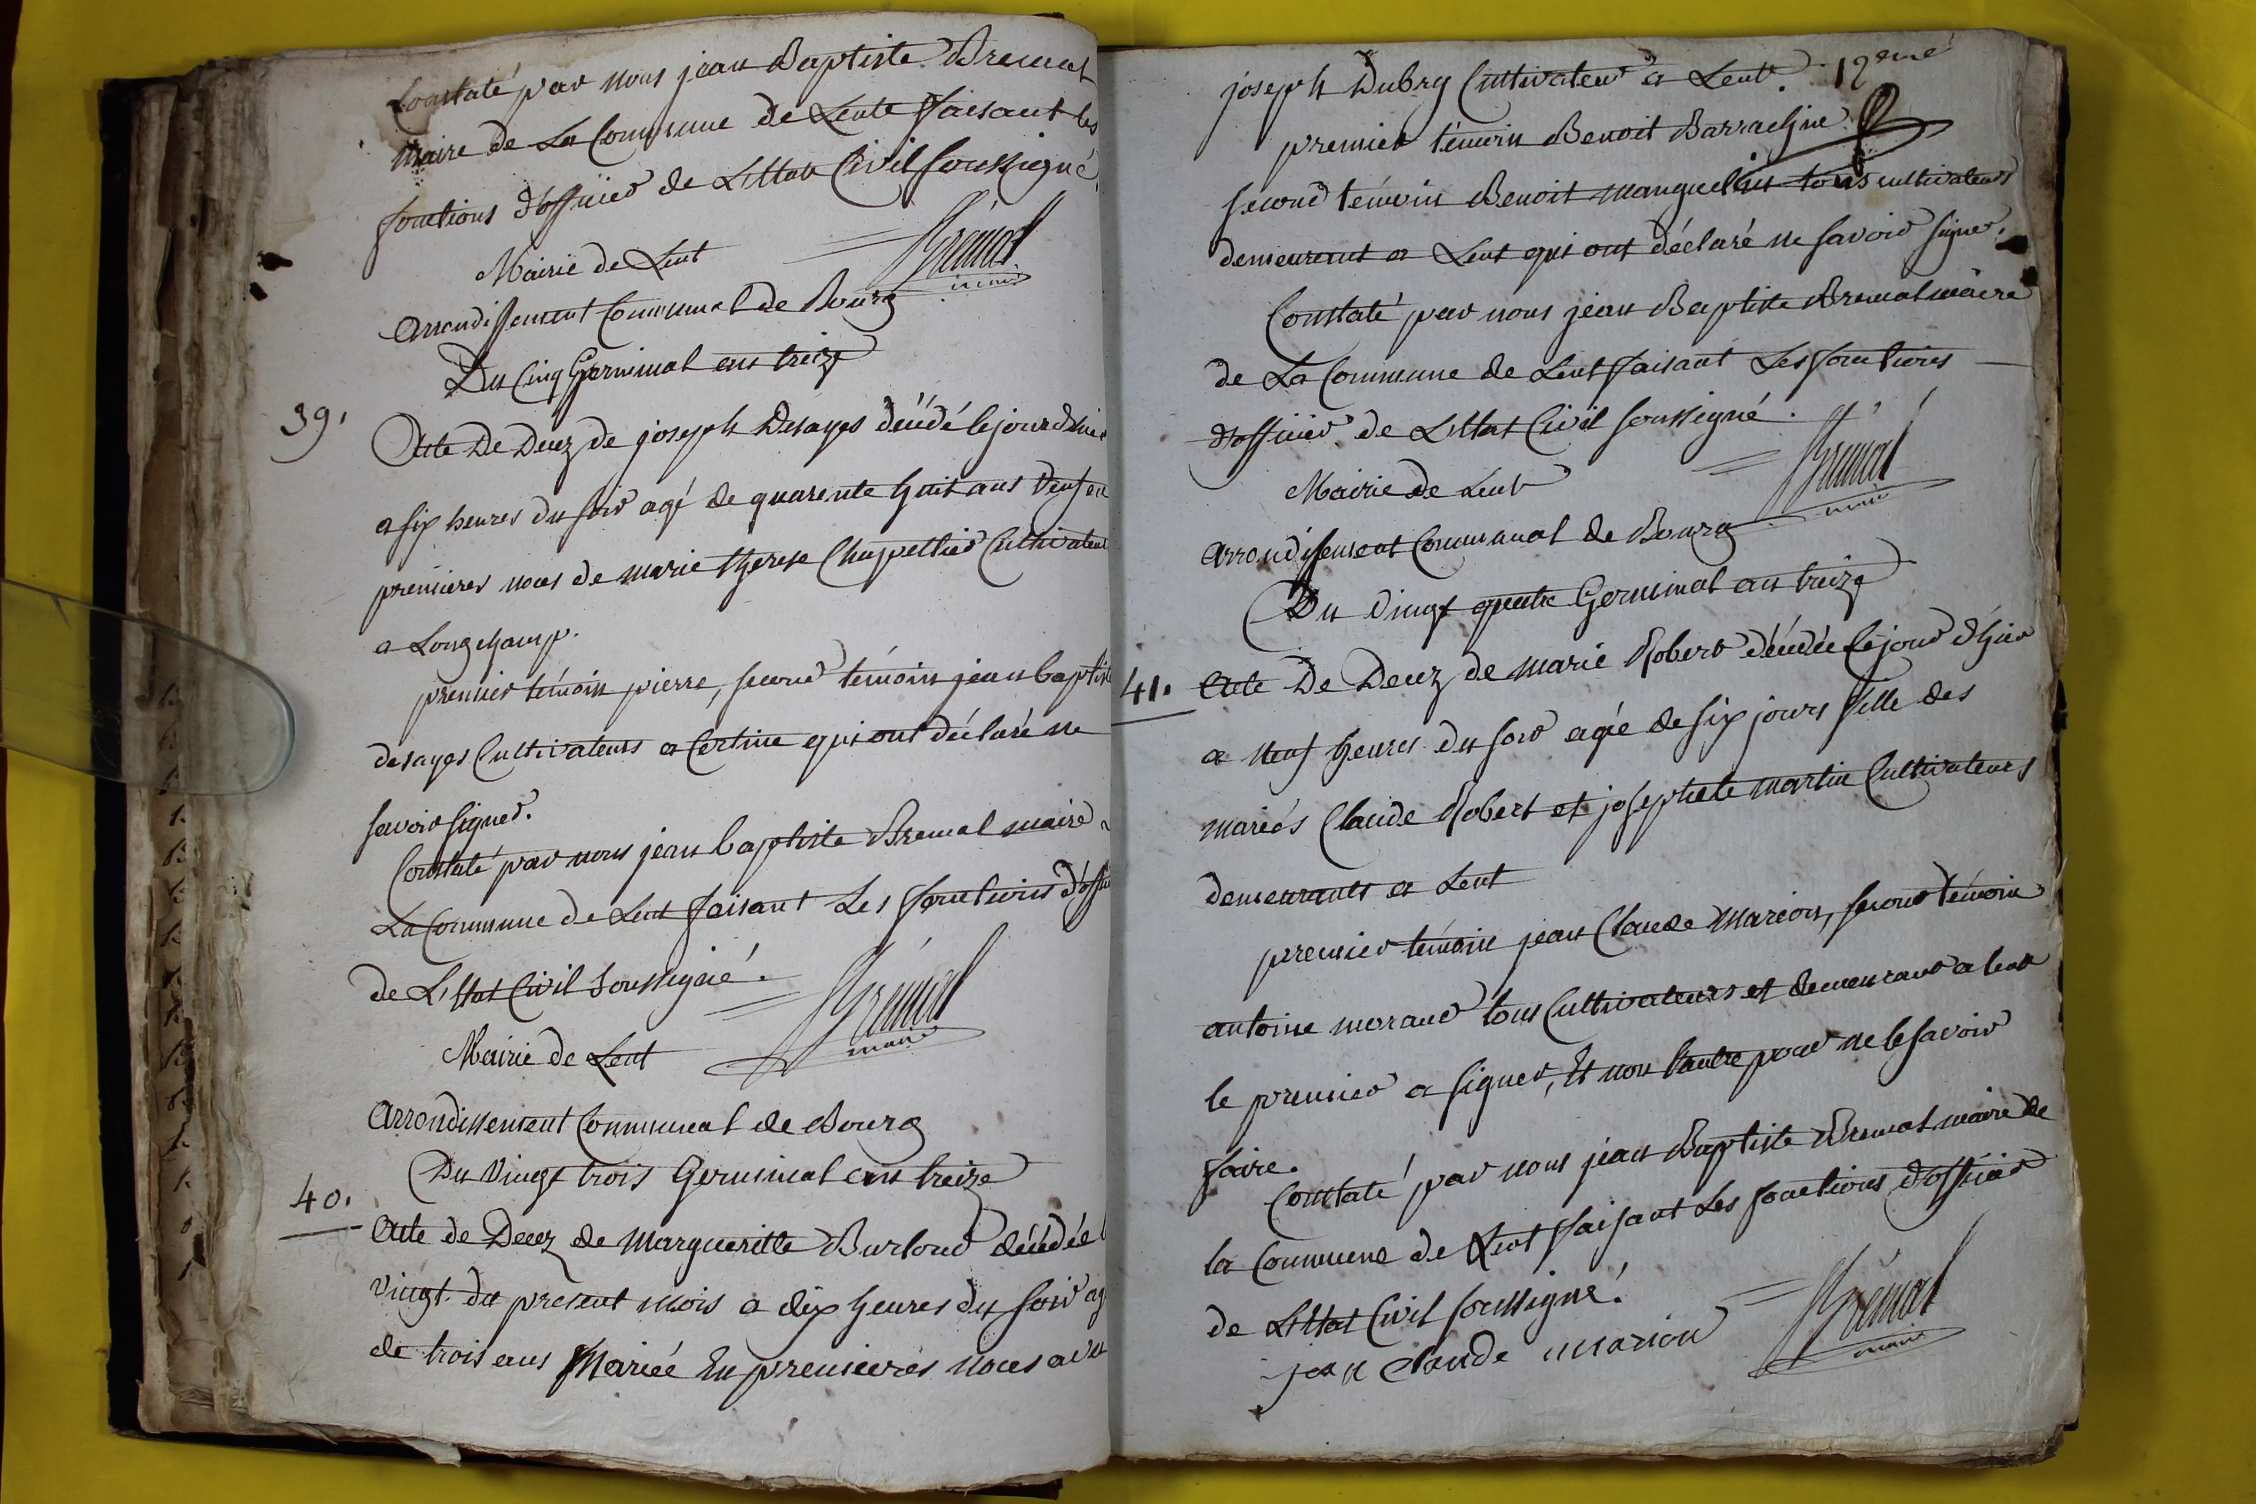 Constaté par nous jean Baptiste Bremal
Maire de La Commune de Lente faisant les
fonctions d'officier de L'Etat Civil soussigné.
Bremal
maire
Mairie de Lent
Arrondissement Communal de Bourg
Du Cinq Germinal an treize
39.
Acte De Decez de joseph Desayes décédé le jour d'hier
a six heures du soir agé de quarente huit ans veuf en
premieres noces de marie therese Chapellier Cultivateur
a Longchamp.
premier témoin pierre, second témoin jean baptiste
desayes Cultivateurs a Certine qui ont déclaré ne
savoir signer.
Constaté par nous jean baptiste Bremal maire
La Commune de Lent faisant Les fonctions d'offi
de L'Etat Civil Soussigné.
Bremal
maire
Mairie de Lent
Arrondissement Communal de Bourg
Du Vingt trois Germinal an treize
40.
Acte de Decez de Marguerite Burloud décédée
vingt du present mois a dix heures du soir ag
de trois ans Mariée En premieres noces avec
12eme
joseph Dubry Cultivateur a Lent.
premier témoin Benoit Barrachin
second témoin Benoit Manguelin tous cultivateurs
demeurant a Lent qui ont déclaré ne savoir signer.
Constaté par nous jean Baptiste Bremal maire
de La Commune de Lent faisant Les fonctions
d'officier de L'Etat Civil soussigné.
Bremal
maire
Mairie de Lent
Arrondissement Communal de Bourg
Du vingt quatre Germinal an treize
41.
Acte De Decez de marie Robert décédée le jour d'hier
a neuf heures du soir agée de six jours fille des
mariés Claude Robert et josephete martin Cultivateurs
demeurants a Lent
premier témoin jean Claude Marion, second témoin
antoine morand tous Cultivateurs et demeurant a lent
le premier a signer, Et non l'autre pour ne le savoir
faire.
Constaté par nous jean Baptiste Bremal maire de
la Commune de Lent faisant Les fonctions d'officier
de L'Etat Civil soussigné.
jean claude marion
Bremal
maire